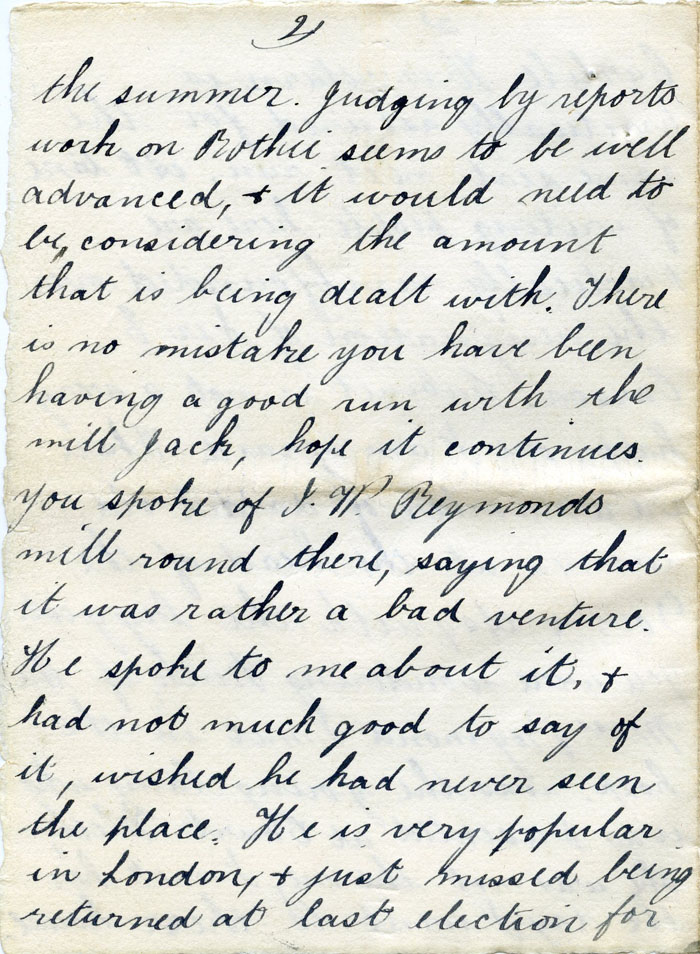 2
the summer. Judging by reports
work on Rothii seems to be well
advanced, & it would need to
be, considering the amount
that is being dealt with. There
is no mistake you have been
having a good run with the
mill Jack, hope it continues.
You spoke of J. W. Reymonds
mill round there, saying that
it was rather a bad venture.
He spoke to me about it, &
had not much good to say of
it, wished he had never seen
the place. He is very popular
in London, & just missed being
returned at last election for